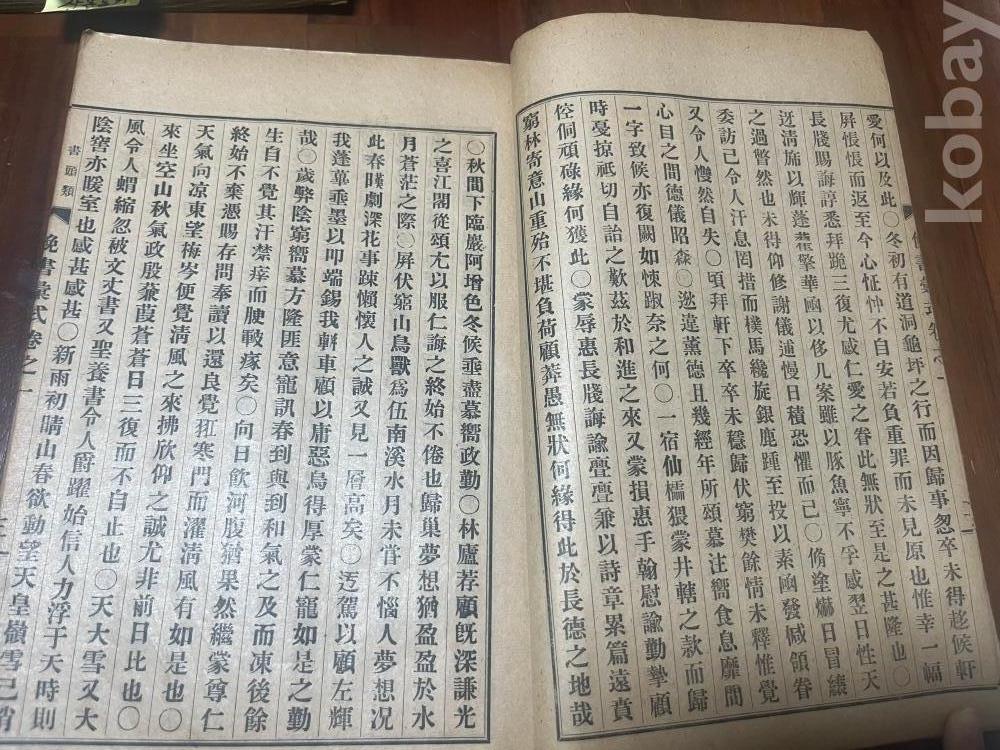 愛何以及此〇冬初有道洞龜坪之行而因歸事怱卒未得趁候軒
屛悵悵而返至今心怔忡不自安若負重罪而未見原也惟幸一幅
長牋賜誨諄悉拜跪三復尤感仁愛之眷此無狀至是之甚隆也〇
迓清施以輝蓬蓽擎華凾以侈几案雖以豚魚寧不孚感翌日性天
之過瞥然也未得仰修謝儀逋慢日積恐懼而已〇脩塗爀日冒
委訪已令人汗息罔措而樸馬纔旋銀鹿踵至投以素凾發緘領眷
又令人愯然自失〇頃拜軒下卒卒未穩歸伏窮樊餘情未釋惟覺
心目之間德儀昭森〇迯違薰德且幾經年所頌慕注嚮食息靡間
一字致候亦復闕如悚踧奈之何〇一宿仙檽猥蒙井轄之款而歸
時憂掠祗切自詒之歎玆於和進之來又蒙損惠手翰慰諭勤摯顧
倥侗頑碌緣何獲此〇蒙辱惠長牋誨諭亹亹兼以詩章累篇遠賁
窮林寄意山重殆不堪負荷顧莽愚無狀何緣得此於長德之地哉
〇秋間下臨巖阿增色冬候乘盡慕嚮政勤〇林廬荐顧旣深謙光
之喜江閣從頌尤以服仁誨之終始不倦也歸巢夢想猶盈盈於水
月蒼茫之際〇屛伏窮山鳥獸爲伍南溪水月未甞不惱人夢想况
此春暵劇深花事踈懶懷人之誠又見一層高矣〇迃駕以顧左輝
我蓬蓽垂墨以叩端錫我軿車顧以庸惡烏得厚蒙仁寵如是之勤
哉〇歲弊陰窮嚮慕方隆匪意寵訊春到與到和氣之及而凍後餘
生自不覺其汗禁瘁而腴皸瘃矣〇向日飮河腹猶果然繼蒙尊仁
終始不棄憑賜存問奉讀以還良覺狂寒門而濯清風有如是也〇
天氣向凉東望梅岑便覺清風之來拂欣仰之誠尤非前日比也〇
來坐空山秋氣政殷蒹葭蒼蒼日三復而不自止也〇天大雪又大
風令人蝟縮忽被丈丈書又聖養書令人爵躍始信人力浮于天時則
陰窖亦暖室也感甚感甚〇新雨初晴山春欲動望天皇嶺雪已消
書頭類
俛書彙式卷之一
kobay